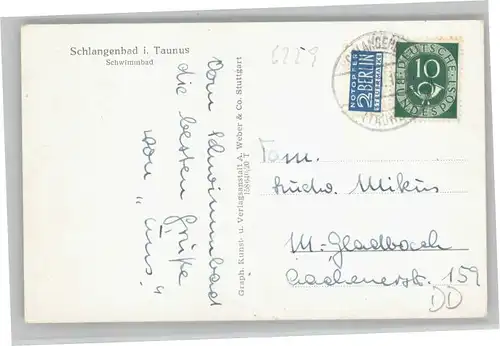 Schlangenbad i. Taunus
Schwimmbad
6229
Vom Schwimmbad
die besten Grüße
von "uns"
Graph. Kunst- u. Verlagsanstalt A. Weber & Co. Stuttgart
NOTOPFER
2 BERLIN
STEUERMARKE
DEUTSCHE
10
BUNDESPOST
Fam.
Ludw. Mikus
M.-Gladbach
Aachenerstr. 159
DD